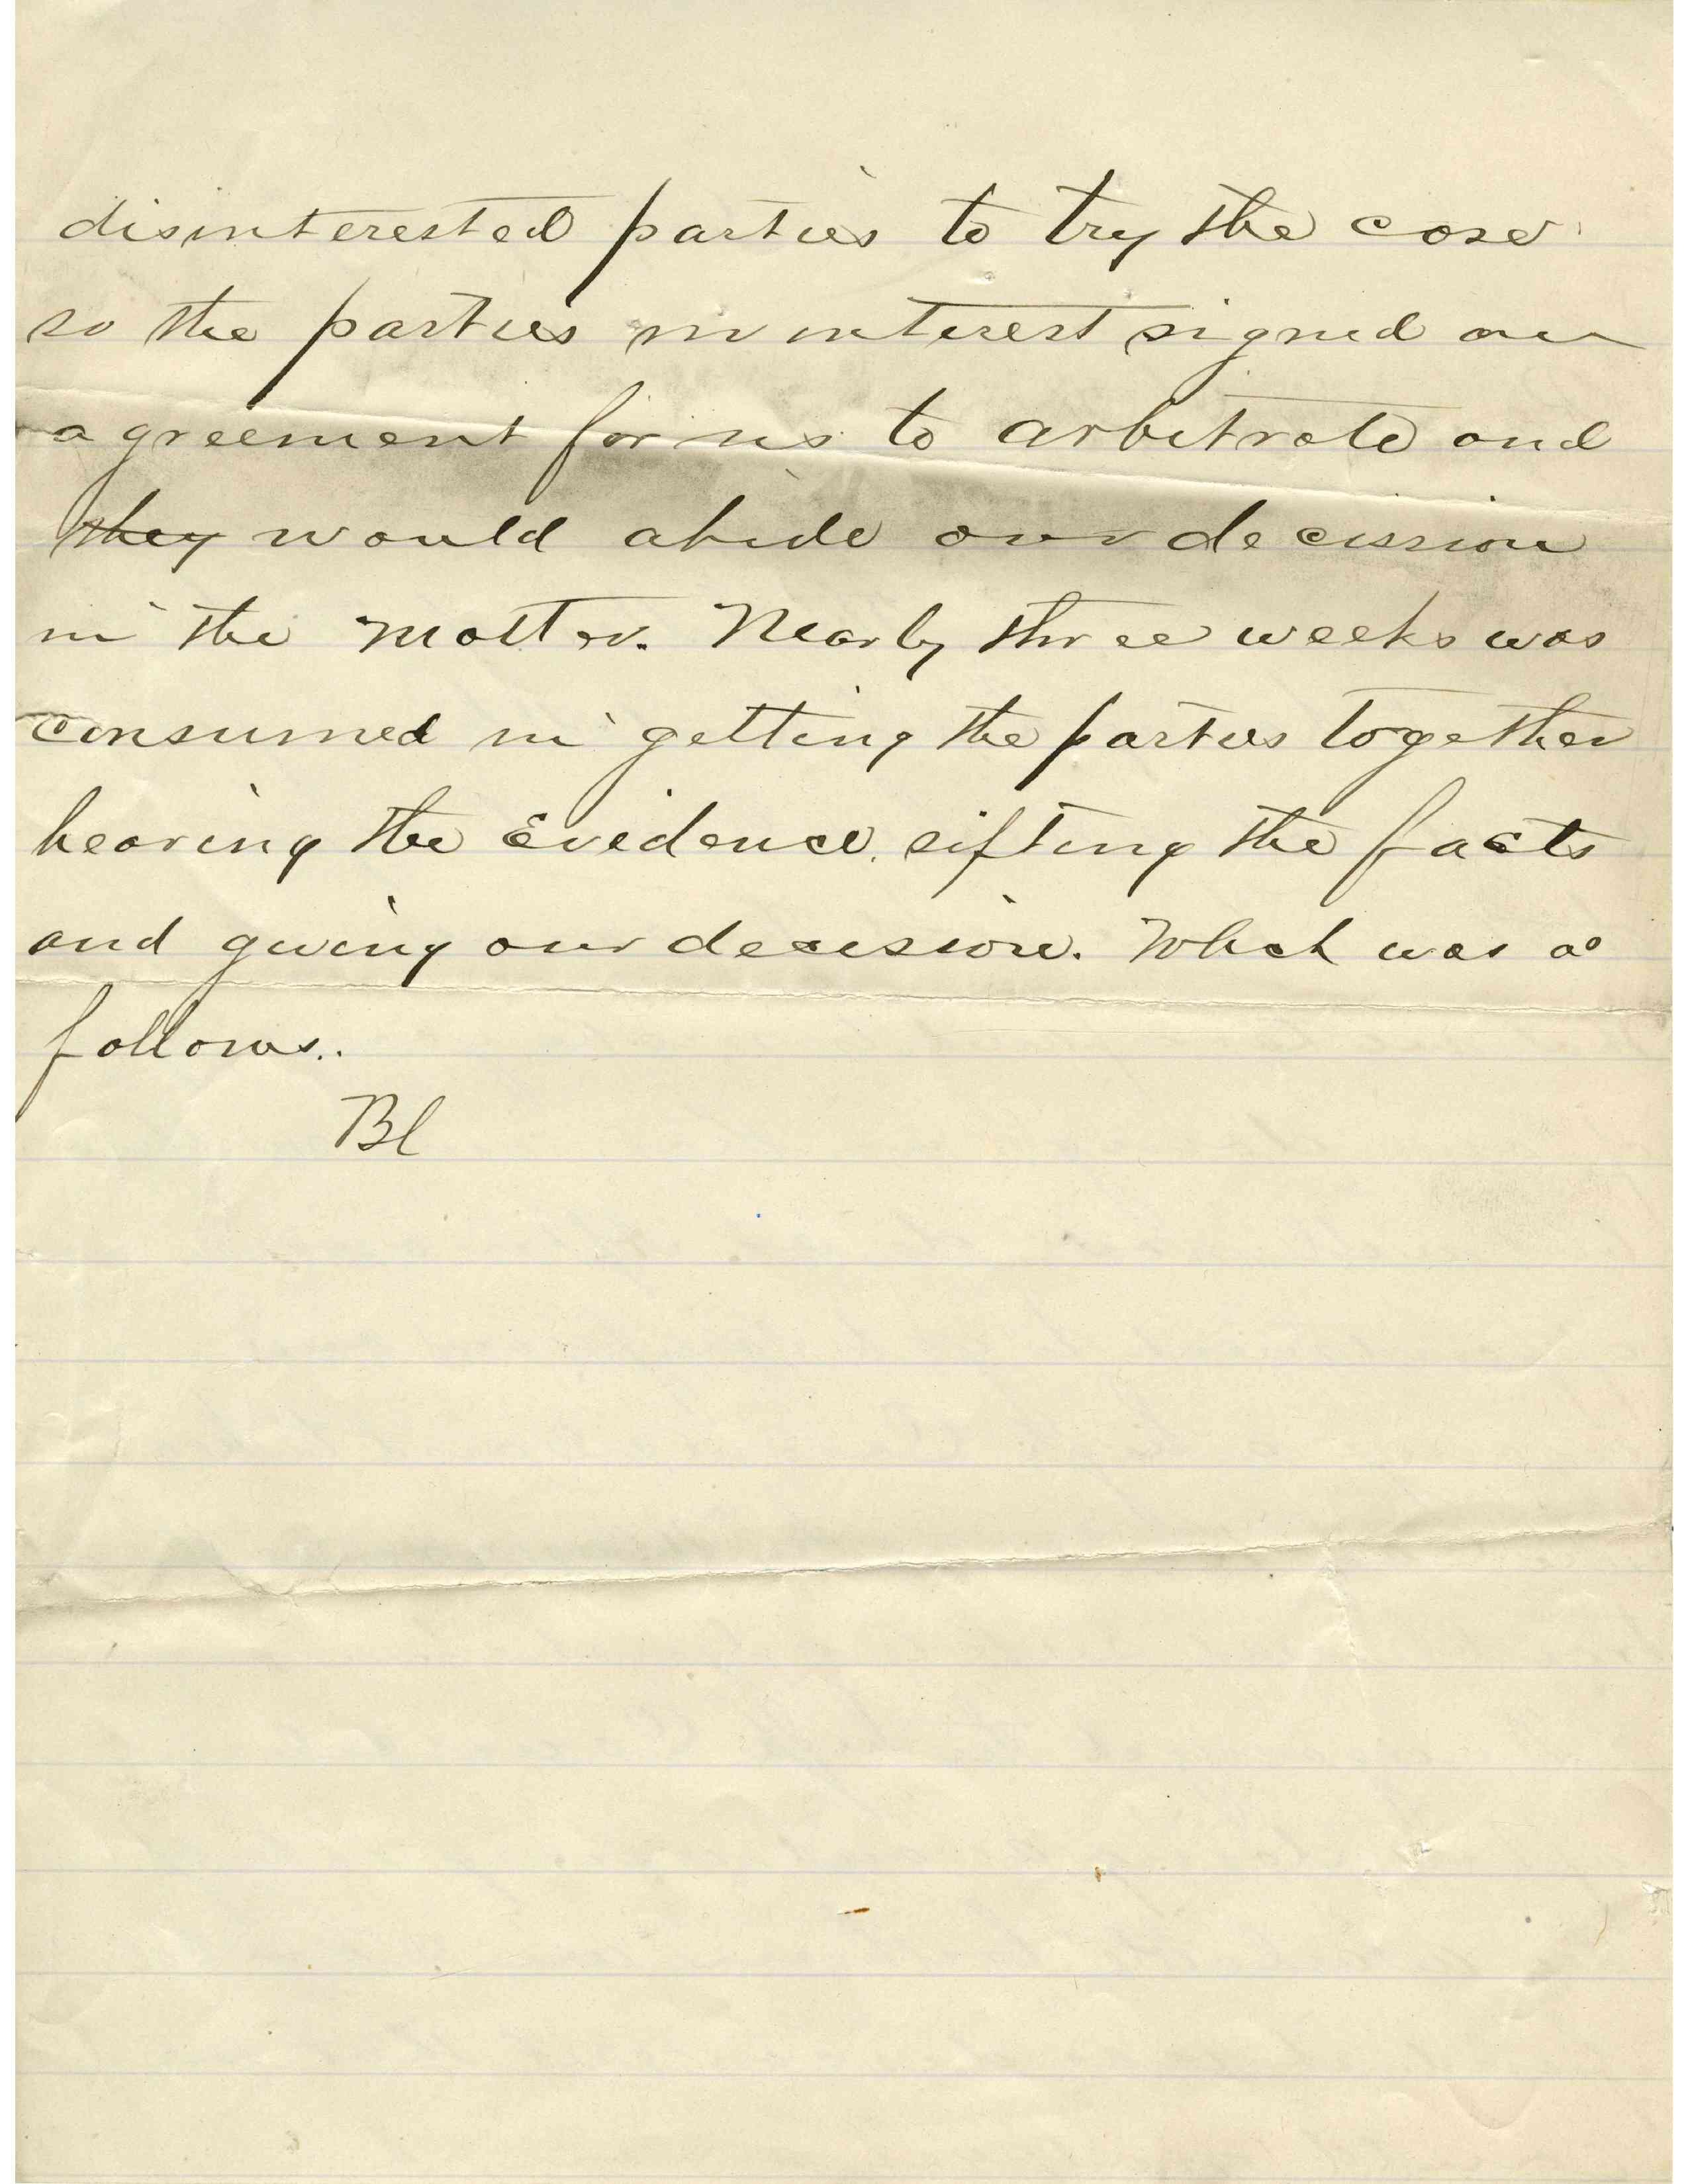 disinterested parties to try the case
so the parties in interest signed an
agreement for us to arbitrate and
they would abide our decission
in the matter. Nearly three weeks was
consumed in getting the parties together
hearing the Evidence, sifting the facts
and giving our decission. Which was as
follows..
Bl